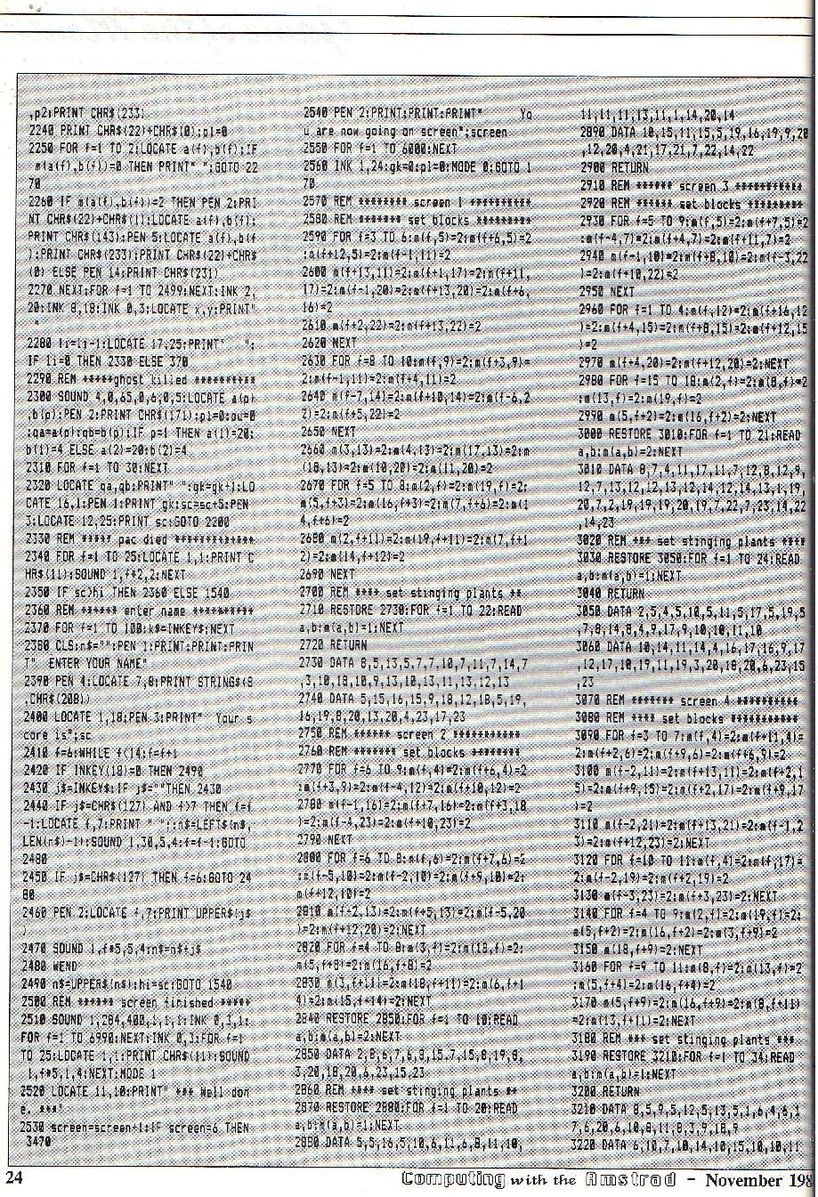 ,p2:PRINT CHR$(233)
2240 PRINT CHR$(22)+CHR$(0):pl=0
2250 FOR f=1 TO 2:LOCATE a(f),b(f):IF
m(a(f),b(f))=0 THEN PRINT" ":GOTO 22
70
2260 IF m(a(f),b(f))=2 THEN PEN 2:PRI
NT CHR$(22)+CHR$(1):LOCATE a(f),b(f):
PRINT CHR$(143):PEN 5:LOCATE a(f),b(f
):PRINT CHR$(233):PRINT CHR$(22)+CHR$
(0) ELSE PEN 14:PRINT CHR$(231)
2270 NEXT:FOR f=1 TO 2499:NEXT:INK 2,
20:INK 8,18:INK 0,3:LOCATE x,y:PRINT"
"
2280 li=li-1:LOCATE 17,25:PRINT" ":
IF li=0 THEN 2330 ELSE 370
2290 REM *****ghost killed **********
2300 SOUND 4,0,65,0,6,0,5:LOCATE a(p)
,b(p):PEN 2:PRINT CHR$(171):pl=0:pu=0
:qa=a(p):qb=b(p):IF p=1 THEN a(1)=20:
b(1)=4 ELSE a(2)=20:b(2)=4
2310 FOR f=1 TO 30:NEXT
2320 LOCATE qa,qb:PRINT" ":gk=gk+1:LO
CATE 16,1:PEN 1:PRINT gk:sc=sc+5:PEN
3:LOCATE 12,25:PRINT sc:GOTO 2200
2330 REM ***** pac died ***********
2340 FOR f=1 TO 25:LOCATE 1,1:PRINT C
HR$(11):SOUND 1,f*2,2:NEXT
2350 IF sc>hi THEN 2360 ELSE 1540
2360 REM ****** enter name **********
2370 FOR f=1 TO 100:k$=INKEY$:NEXT
2380 CLS:n$="":PEN 1:PRINT:PRINT:PRIN
T" ENTER YOUR NAME"
2390 PEN 4:LOCATE 7,8:PRINT STRING$(8
,CHR$(208))
2400 LOCATE 1,18:PEN 3:PRINT" Your s
core is";sc
2410 f=6:WHILE f<14:f=f+1
2420 IF INKEY(18)=0 THEN 2490
2430 j$=INKEY$:IF j$=""THEN 2430
2440 IF j$=CHR$(127) AND f>7 THEN f=f
-1:LOCATE f,7:PRINT " ";:n$=LEFT$(n$,
LEN(n$)-1):SOUND 1,30,5,4:f=f-1:GOTO
2480
2450 IF j$=CHR$(127) THEN f=6:GOTO 24
80
2460 PEN 2:LOCATE f,7:PRINT UPPER$(j$
)
2470 SOUND 1,f*5,5,4:n$=n$+j$
2480 WEND
2490 n$=UPPER$(n$):hi=sc:GOTO 1540
2500 REM ****** screen finished *****
2510 SOUND 1,284,400,1,1,1:INK 0,3,1:
FOR f=1 TO 6990:NEXT:INK 0,3:FOR f=1
TO 25:LOCATE 1,1:PRINT CHR$(11):SOUND
1,f*5,1,4:NEXT:MODE 1
2520 LOCATE 11,10:PRINT" *** Well don
e. ***"
2530 screen=screen+1:IF screen=6 THEN
3470
2540 PEN 2:PRINT:PRINT:PRINT" Yo
u are now going on screen";screen
2550 FOR f=1 TO 6000:NEXT
2560 INK 1,24:gk=0:pl=0:MODE 0:GOTO 1
70
2570 REM ******** screen 1 **********
2580 REM ******* set blocks *********
2590 FOR f=3 TO 6:m(f,5)=2:m(f+6,5)=2
:m(f+12,5)=2:m(f-1,11)=2
2600 m(f+13,11)=2:m(f+1,17)=2:m(f+11,
17)=2:m(f-1,20)=2:m(f+13,20)=2:m(f+6,
16)=2
2610 m(f+2,22)=2:m(f+13,22)=2
2620 NEXT
2630 FOR f=8 TO 10:m(f,9)=2:m(f+3,9)=
2:m(f-1,11)=2:m(f+4,11)=2
2640 m(f-7,14)=2:m(f+10,14)=2:m(f-6,2
2)=2:m(f+5,22)=2
2650 NEXT
2660 m(3,13)=2:m(4,13)=2:m(17,13)=2:m
(18,13)=2:m(10,20)=2:m(11,20)=2
2670 FOR f=5 TO 8:m(2,f)=2:m(19,f)=2:
m(5,f+3)=2:m(16,f+3)=2:m(7,f+6)=2:m(1
4,f+6)=2
2680 m(2,f+11)=2:m(19,f+11)=2:m(7,f+1
2)=2:m(14,f+12)=2
2690 NEXT
2700 REM **** set stinging plants **
2710 RESTORE 2730:FOR f=1 TO 22:READ
a,b:m(a,b)=1:NEXT
2720 RETURN
2730 DATA 8,5,13,5,7,7,10,7,11,7,14,7
,3,10,18,10,9,13,10,13,11,13,12,13
2740 DATA 5,15,16,15,9,18,12,18,5,19,
16,19,8,20,13,20,4,23,17,23
2750 REM ******* screen 2 **********
2760 REM ******* set blocks ********
2770 FOR f=6 TO 9:m(f,4)=2:m(f+6,4)=2
:m(f+3,9)=2:m(f-4,12)=2:m(f+10,12)=2
2780 m(f-1,16)=2:m(f+7,16)=2:m(f+3,18
)=2:m(f-4,23)=2:m(f+10,23)=2
2790 NEXT
2800 FOR f=6 TO 8:m(f,6)=2:m(f+7,6)=2
:m(f-5,10)=2:m(f-2,10)=2:m(f+9,10)=2:
m(f+12,10)=2
2810 m(f+2,13)=2:m(f+5,13)=2:m(f-5,20
)=2:m(f+12,20)=2:NEXT
2820 FOR f=4 TO 8:m(3,f)=2:m(18,f)=2:
m(5,f+8)=2:m(16,f+8)=2
2830 m(3,f+11)=2:m(18,f+11)=2:m(6,f+1
4)=2:m(15,f+14)=2:NEXT
2840 RESTORE 2850:FOR f=1 TO 10:READ
a,b:m(a,b)=2:NEXT
2850 DATA 2,8,6,7,6,8,15,7,15,8,19,8,
3,20,18,20,6,23,15,23
2860 REM **** set stinging plants **
2870 RESTORE 2880:FOR f=1 TO 20:READ
a,b:m(a,b)=1:NEXT
2880 DATA 5,5,16,5,10,6,11,6,8,11,10,
11,11,11,13,11,1,14,20,14
2890 DATA 10,15,11,15,5,19,16,19,9,20
,12,20,4,21,17,21,7,22,14,22
2900 RETURN
2910 REM ****** screen 3 ***********
2920 REM ****** set blocks *********
2930 FOR f=5 TO 9:m(f,5)=2:m(f+7,5)=2
:m(f-4,7)=2:m(f+4,7)=2:m(f+11,7)=2
2940 m(f-1,10)=2:m(f+8,10)=2:m(f-3,22
)=2:m(f+10,22)=2
2950 NEXT
2960 FOR f=1 TO 4:m(f,12)=2:m(f+16,12
)=2:m(f+4,15)=2:m(f+8,15)=2:m(f+12,15
)=2
2970 m(f+4,20)=2:m(f+12,20)=2:NEXT
2980 FOR f=15 TO 18:m(2,f)=2:m(8,f)=2
:m(13,f)=2:m(19,f)=2
2990 m(5,f+2)=2:m(16,f+2)=2:NEXT
3000 RESTORE 3010:FOR f=1 TO 21:READ
a,b:m(a,b)=2:NEXT
3010 DATA 8,7,4,11,17,11,7,12,8,12,9,
12,7,13,12,12,13,12,14,12,14,13,1,19,
20,7,2,19,19,19,20,19,7,22,7,23,14,22
,14,23
3020 REM *** set stinging plants ****
3030 RESTORE 3050:FOR f=1 TO 24:READ
a,b:m(a,b)=1:NEXT
3040 RETURN
3050 DATA 2,5,4,5,10,5,11,5,17,5,19,5
,7,8,14,8,4,9,17,9,10,10,11,10
3060 DATA 10,14,11,14,4,16,17,16,9,17
,12,17,10,19,11,19,3,20,18,20,6,23,15
,23
3070 REM ******* screen 4 **********
3080 REM **** set blocks ***********
3090 FOR f=3 TO 7:m(f,4)=2:m(f+11,4)=
2:m(f+2,6)=2:m(f+9,6)=2:m(f+6,9)=2
3100 m(f-2,11)=2:m(f+13,11)=2:m(f+2,1
5)=2:m(f+9,15)=2:m(f+2,17)=2:m(f+9,17
)=2
3110 m(f-2,21)=2:m(f+13,21)=2:m(f-1,2
3)=2:m(f+12,23)=2:NEXT
3120 FOR f=10 TO 11:m(f,4)=2:m(f,17)=
2:m(f-2,19)=2:m(f+2,19)=2
3130 m(f-3,23)=2:m(f+3,23)=2:NEXT
3140 FOR f=4 TO 9:m(2,f)=2:m(19,f)=2:
m(5,f+2)=2:m(16,f+2)=2:m(3,f+9)=2
3150 m(18,f+9)=2:NEXT
3160 FOR f=9 TO 11:m(8,f)=2:m(13,f)=2
:m(5,f+4)=2:m(16,f+4)=2
3170 m(5,f+9)=2:m(16,f+9)=2:m(8,f+11)
=2:m(13,f+11)=2:NEXT
3180 REM *** set stinging plants ***
3190 RESTORE 3210:FOR f=1 TO 34:READ
a,b:m(a,b)=1:NEXT
3200 RETURN
3210 DATA 8,5,9,5,12,5,13,5,1,6,4,6,1
7,6,20,6,10,8,11,8,3,9,18,9
3220 DATA 6,10,7,10,14,10,15,10,10,11
24 Computing with the Amstrad - November 198